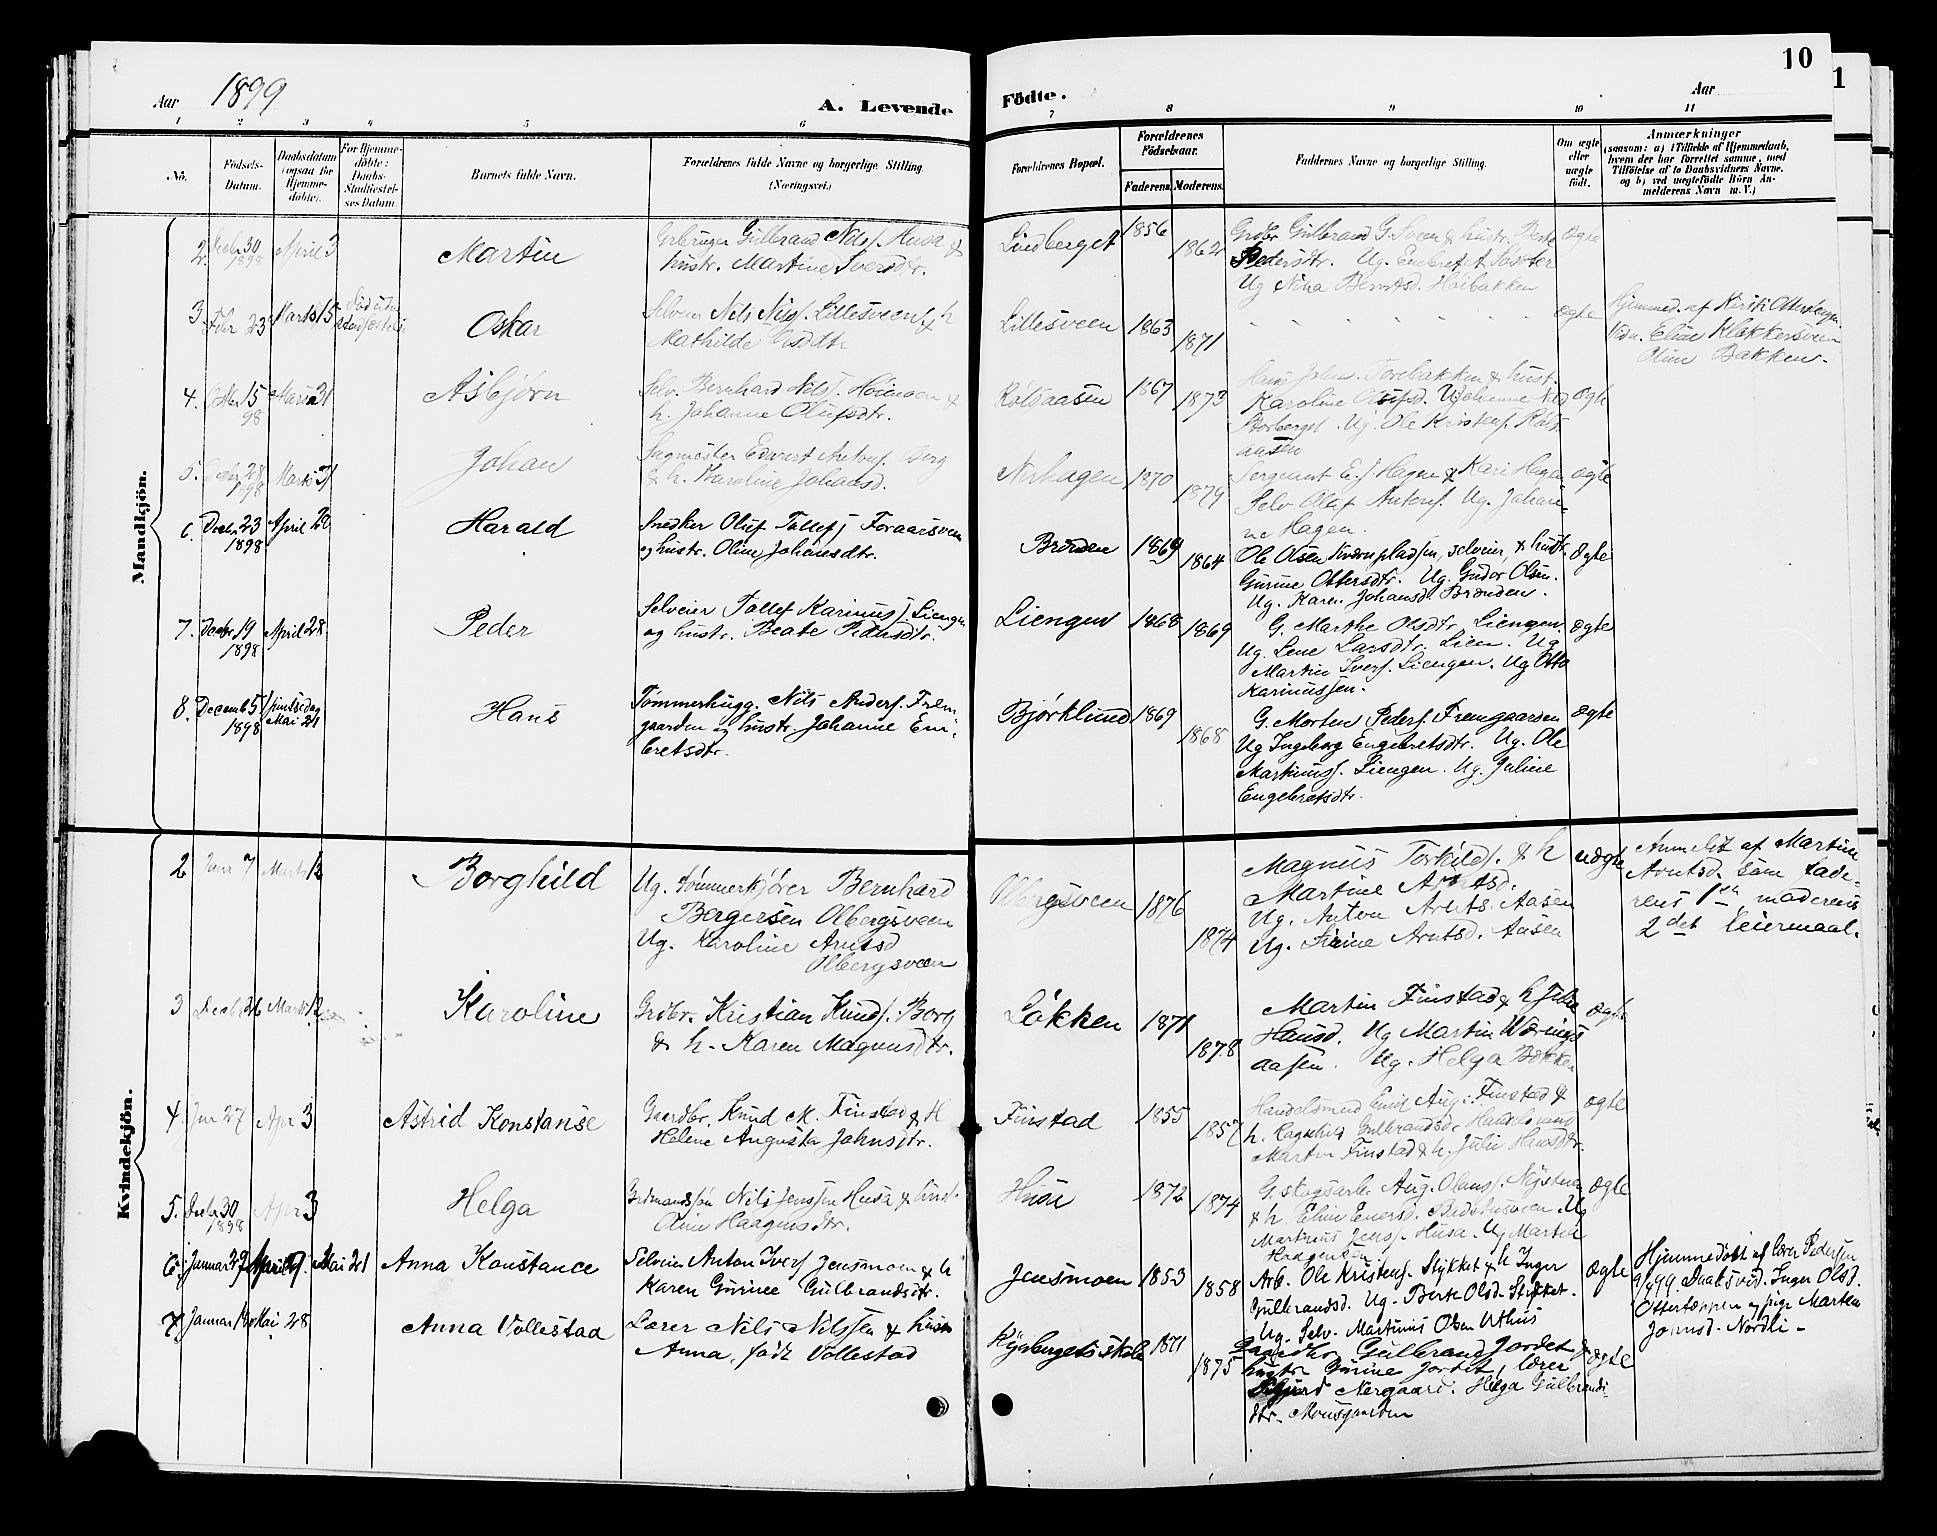 10
Aar 1899
A. Levende
Födte.
Aar
1 2 3 4 5 6 7 8 9 10 11
No.
Födsels-
Datum.
Daabsdatum
(ogsaa for
Hjemme-
döbte).
For Hjemme-
döbte:
Daabs-
Stadfæstel-
ses Datum
Barnets fulde Navn.
Forældrenes fulde Navne og borgerlige Stilling.
(Næringsvei.)
Forældrenes Bopæl.
Forældrenes
Födselsaar.
Faderens. Moderens.
Faddernes Navne og borgerlige Stilling.
Om ægte
eller
uægte
født.
Anmærkninger
(saasom: a) i Tilfælde af Hjemmedaab,
hvem der har forrettet samme, med
Tilföielse af to Daabsvidners Navne,
og b) ved uægtefödte Börn An-
melderens Navn m. V.)
Mandkjön.
2. Decbr 30
1898
April 3
Martin
Grbruger Gulbrand Nilsf. Husa &
hustr. Martine Iversdtr.
Lindberget
1856
1862
Grdbr Gulbrand G. Sveen & hustr. Berte
Pedersdtr. Ug. Embret
Ug Nina Berntsd. Høibakken
Ægte
3. Febr 23
Marts 15
Oskar
Selveier Nils Lillesveen & h
Mathilde
Lillesveen
1863
1871
ægte
Hjemmed. af
Vidn. Eline Klokkersveen
Oline Bakken.
4. Oktbr 15
98
Marts 21
Asbjørn
Selv. Bernhard Nilsf. Hoimoen &
h. Johanne Olufsdtr.
Rolsaasen
1867
1873
Hans Johans. Torebakken & hust.
Karoline Olufsd. Ug Johanne
Storberget. Ug. Ole Kristensf. Rols
aasen
Ægte
5. Decbr 28
1898
Marts 31
Johan
Sagmester Edvart Antonf. Berg
& h. Karoline Johansd.
Nerhagen
1870
1879
Sergeant E. J. Hagen & Kari Hagen
Selv Oluf Antonsf. Ug. Johan-
ne Hagen.
ægte
6. Decbr. 23
1898
April 20
Harald
Snedker Oluf Tollefs Foraarsveen
og hustr. Oline Johansdtr.
Brænden
1869
1864
Ole Olsen Kværnpladsen, selveier, & hustr.
Gurine Ottersdtr. Ug. Gudor Olsen.
Ug. Karen Johansd. Brænden.
Ægte
7. Decbr 19
1898
April 28
Peder
Selveier Tollef Karinusf. Liengen
og hustr. Beate Pedersdtr.
Liengen
1868
1869
G. Marthe Olsdtr. Liengen.
Ug. Lene Larsdtr. Lien. Ug.
Martin Iversf. Liengen. Ug Otto
Karinussen.
Ægte
8. Decemb 5
1898
Pintsedag
Mai 21
Hans
Tømmerhugg. Nils Andersf. Frem-
gaarden og hustr. Johanne Em-
bretsdtr.
Bjørklund
1869
1868
G. Morten Pedersf. Fremgaarden
Ug Ingeborg Engebretsdtr. Ug. Ole
Martinusf. Liengen. Ug. Juline
Engebretsdtr.
Ægte
Kvindekjön.
2 Janr 7
Marts 12
Borghild
Ug. Tømmerkjører Bernhard
Bergersen Olbergsveen
Ug. Karoline Arntsd
Olbergsveen
Olbergsveen
1876
1874
Magnus Torkilds. & h
Martine Arntsd.
Ug. Anton Arnts. Aasen
Ug. Arntsd. Aasen
uægte
Anmeldt af Martine
Arntsd. som fade-
rens 1ste, moderens
2det leiermaal.
3 Decbr 26
Marts 12
Karoline
Grdbr. Kristian Knudf. Borg
& h. Karen Magnusdtr.
Løkken
1871
1878
Martin Finstad & h Julie
Hansd. Ug Martin Værnings
aasen. Ug. Helga Bakken
ægte
4 Jan 27
Apr 3
Astrid Konstanse
Gaardbr. Knud M. Finstad & H
Helene Augusta Johnsdtr.
Finstad
1855
1857
Handelsmand Emil Aug. Finstad &
h. Ragnhild Gulbrandsd. Handelsmand
Martin Finstad & h. Julie Hansdtr.
ægte
5. Decbr 30
1898
Apr 3
Helga
Nils Jenssen Husa & hust.
Oline Haagensdtr.
Husa
1872
1874
G. stagsarb. Aug. Olansf. Nystuen
& h. Eline Enersd. Ug
Martinus Jensf. Husa. Ug Martin
Haagensen
Ægte
6. Januar 27
April
Mai 21
Anna Konstance
Selveier Anton Iversf Jensmoen & h
Karen Gurinee Gulbrandsdtr.
Jensmoen
1853
1858
Arb. Ole Kristensf. Stykket & h Inger
Gulbrandsd. Ug. Berte Olsd. Stykket.
Ug. Selv. Martinus Olsen Uthus
Ægte
Hjemmedøbt af lærer Pedersen
9/4 99. Daabsvid. Inger Olsd.
Ottertoppen og pige Marten
Jonsd. Nordli -
7 Januar 19
Mai 28
Anna Vollestad
Lærer Nils Nilssen & hustr
Anna, født Vollestad
skole
1871
1875
Gaardbr Gulbrand Jordet &
hustr. Gurine Jordet, lærer
Sigurd Nergaard. Helga Gulbrands-
dtr. Monsgaarden
Ægte